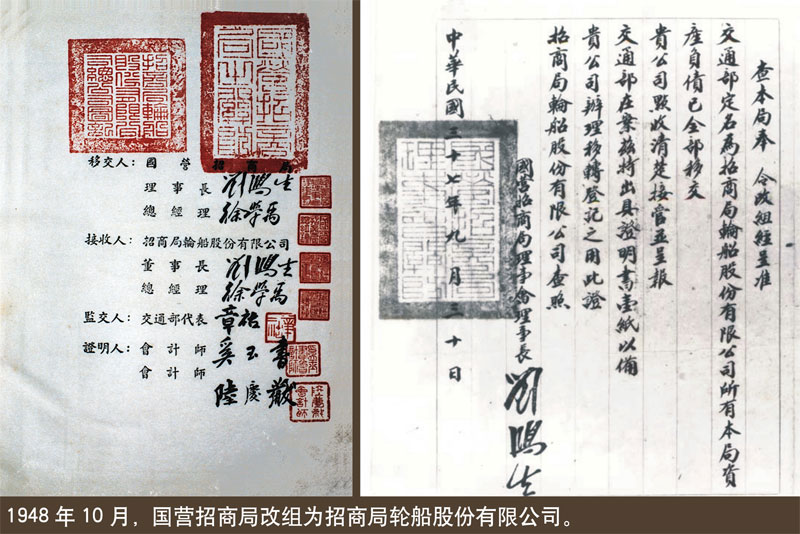 移交人：國營招商局
理事長 劉鴻生
總經理 徐學禹
接收人：招商局輪船股份有限公司
董事長 劉鴻生
總經理 徐學禹
監交人：交通部代表 章祜
證明人：會計師 奚玉書
會計師 陸慶
查本局奉 令改組經呈准
交通部定名為招商局輪船股份有限公司所有本局資
產負債已全部移交
貴公司點收清楚接管並呈報
交通部在案茲特出具證明書壹紙以備
貴公司辦理移轉登記之用此證
招商局輪船股份有限公司查照
國營招商局理事會理事長 劉鴻生
中華民國三十七年九月三十日
1948 年 10 月，国营招商局改组为招商局轮船股份有限公司。